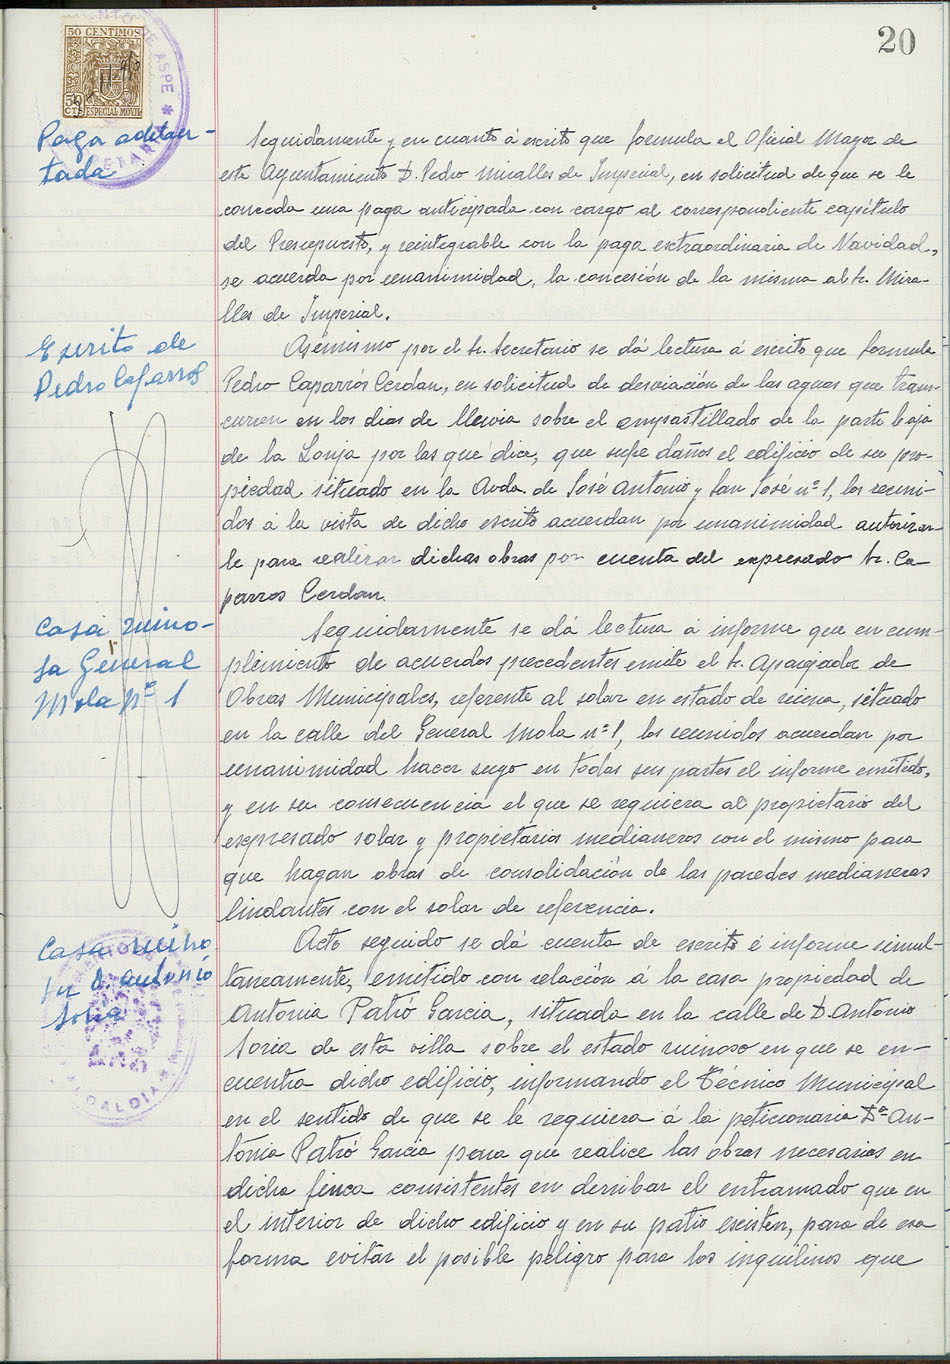 20
50 CENTIMOS
50
CTS ESPECIAL MOVIL
DE ASPE *
Paga adelan-
tada
Seguidamente y en cuanto á escrito que formula el Oficial Mayor de
este Ayuntamiento D. Pedro Miralles de Imperial, en solicitud de que se le
conceda una paga anticipada con cargo al correspondiente capítulo
del Presupuesto, y reintegrable con la paga extraordinaria de Navidad,
se acuerda por unanimidad, la concesión de la misma al Sr. Mira-
lles de Imperial.
Escrito de
Pedro Caparros
Asimismo por el Sr. Secretario se dá lectura á escrito que formula
Pedro Caparrós Cerdan, en solicitud de desviación de las aguas que trans-
curren en los dias de lluvia sobre el empastillado de la parte baja
de la Lonja por las que dice, que sufre daños el edificio de su pro-
piedad situado en la Avda. de José Antonio y San José nº 1, los reuni-
dos á la vista de dicho escrito acuerdan por unanimidad autorizar-
le para realizar dichas obras por cuenta del expresado Sr. Ca-
parros Cerdan.
Casa ruino-
sa General
Mola nº 1
Seguidamente se dá lectura á informe que en cum-
plimiento de acuerdos precedentes emite el Sr. Aparejador de
Obras Municipales, referente al solar en estado de ruina, situado
en la calle del General Mola nº 1, los reunidos acuerdan por
unanimidad hacer suyo en todas sus partes el informe emitido,
y en su consecuencia el que se requiera al propietario del
expresado solar y propietarios medianeros con el mismo para
que hagan obras de consolidación de las paredes medianeras
lindantes con el solar de referencia.
Casa ruino
sa D. Antonio
Soria
ALCALDIA
Acto seguido se dá cuenta de escrito é informe simul-
taneamente, emitido con relación á la casa propiedad de
Antonia Patió Garcia, situada en la calle de D. Antonio
Soria de esta villa sobre el estado ruinoso en que se en-
cuentra dicho edificio, informando el Técnico Municipal
en el sentido de que se le requiera á la peticionaria Dª An-
tonia Patió Garcia para que realice las obras necesarias en
dicha finca consistentes en derribar el entramado que en
el interior de dicho edificio y en su patio existen, para de esa
forma evitar el posible peligro para los inquilinos que